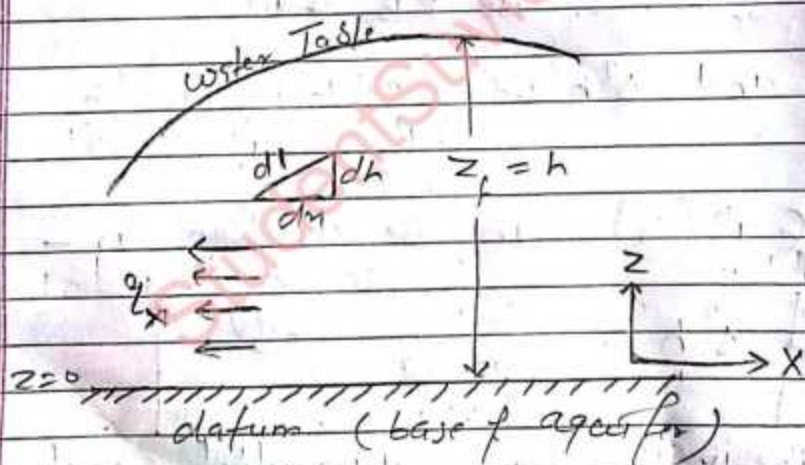 water Table
dl dh
dx
Z = h
q x
Z
X
z=0
datum (base of aquifer)
StudentSuvi